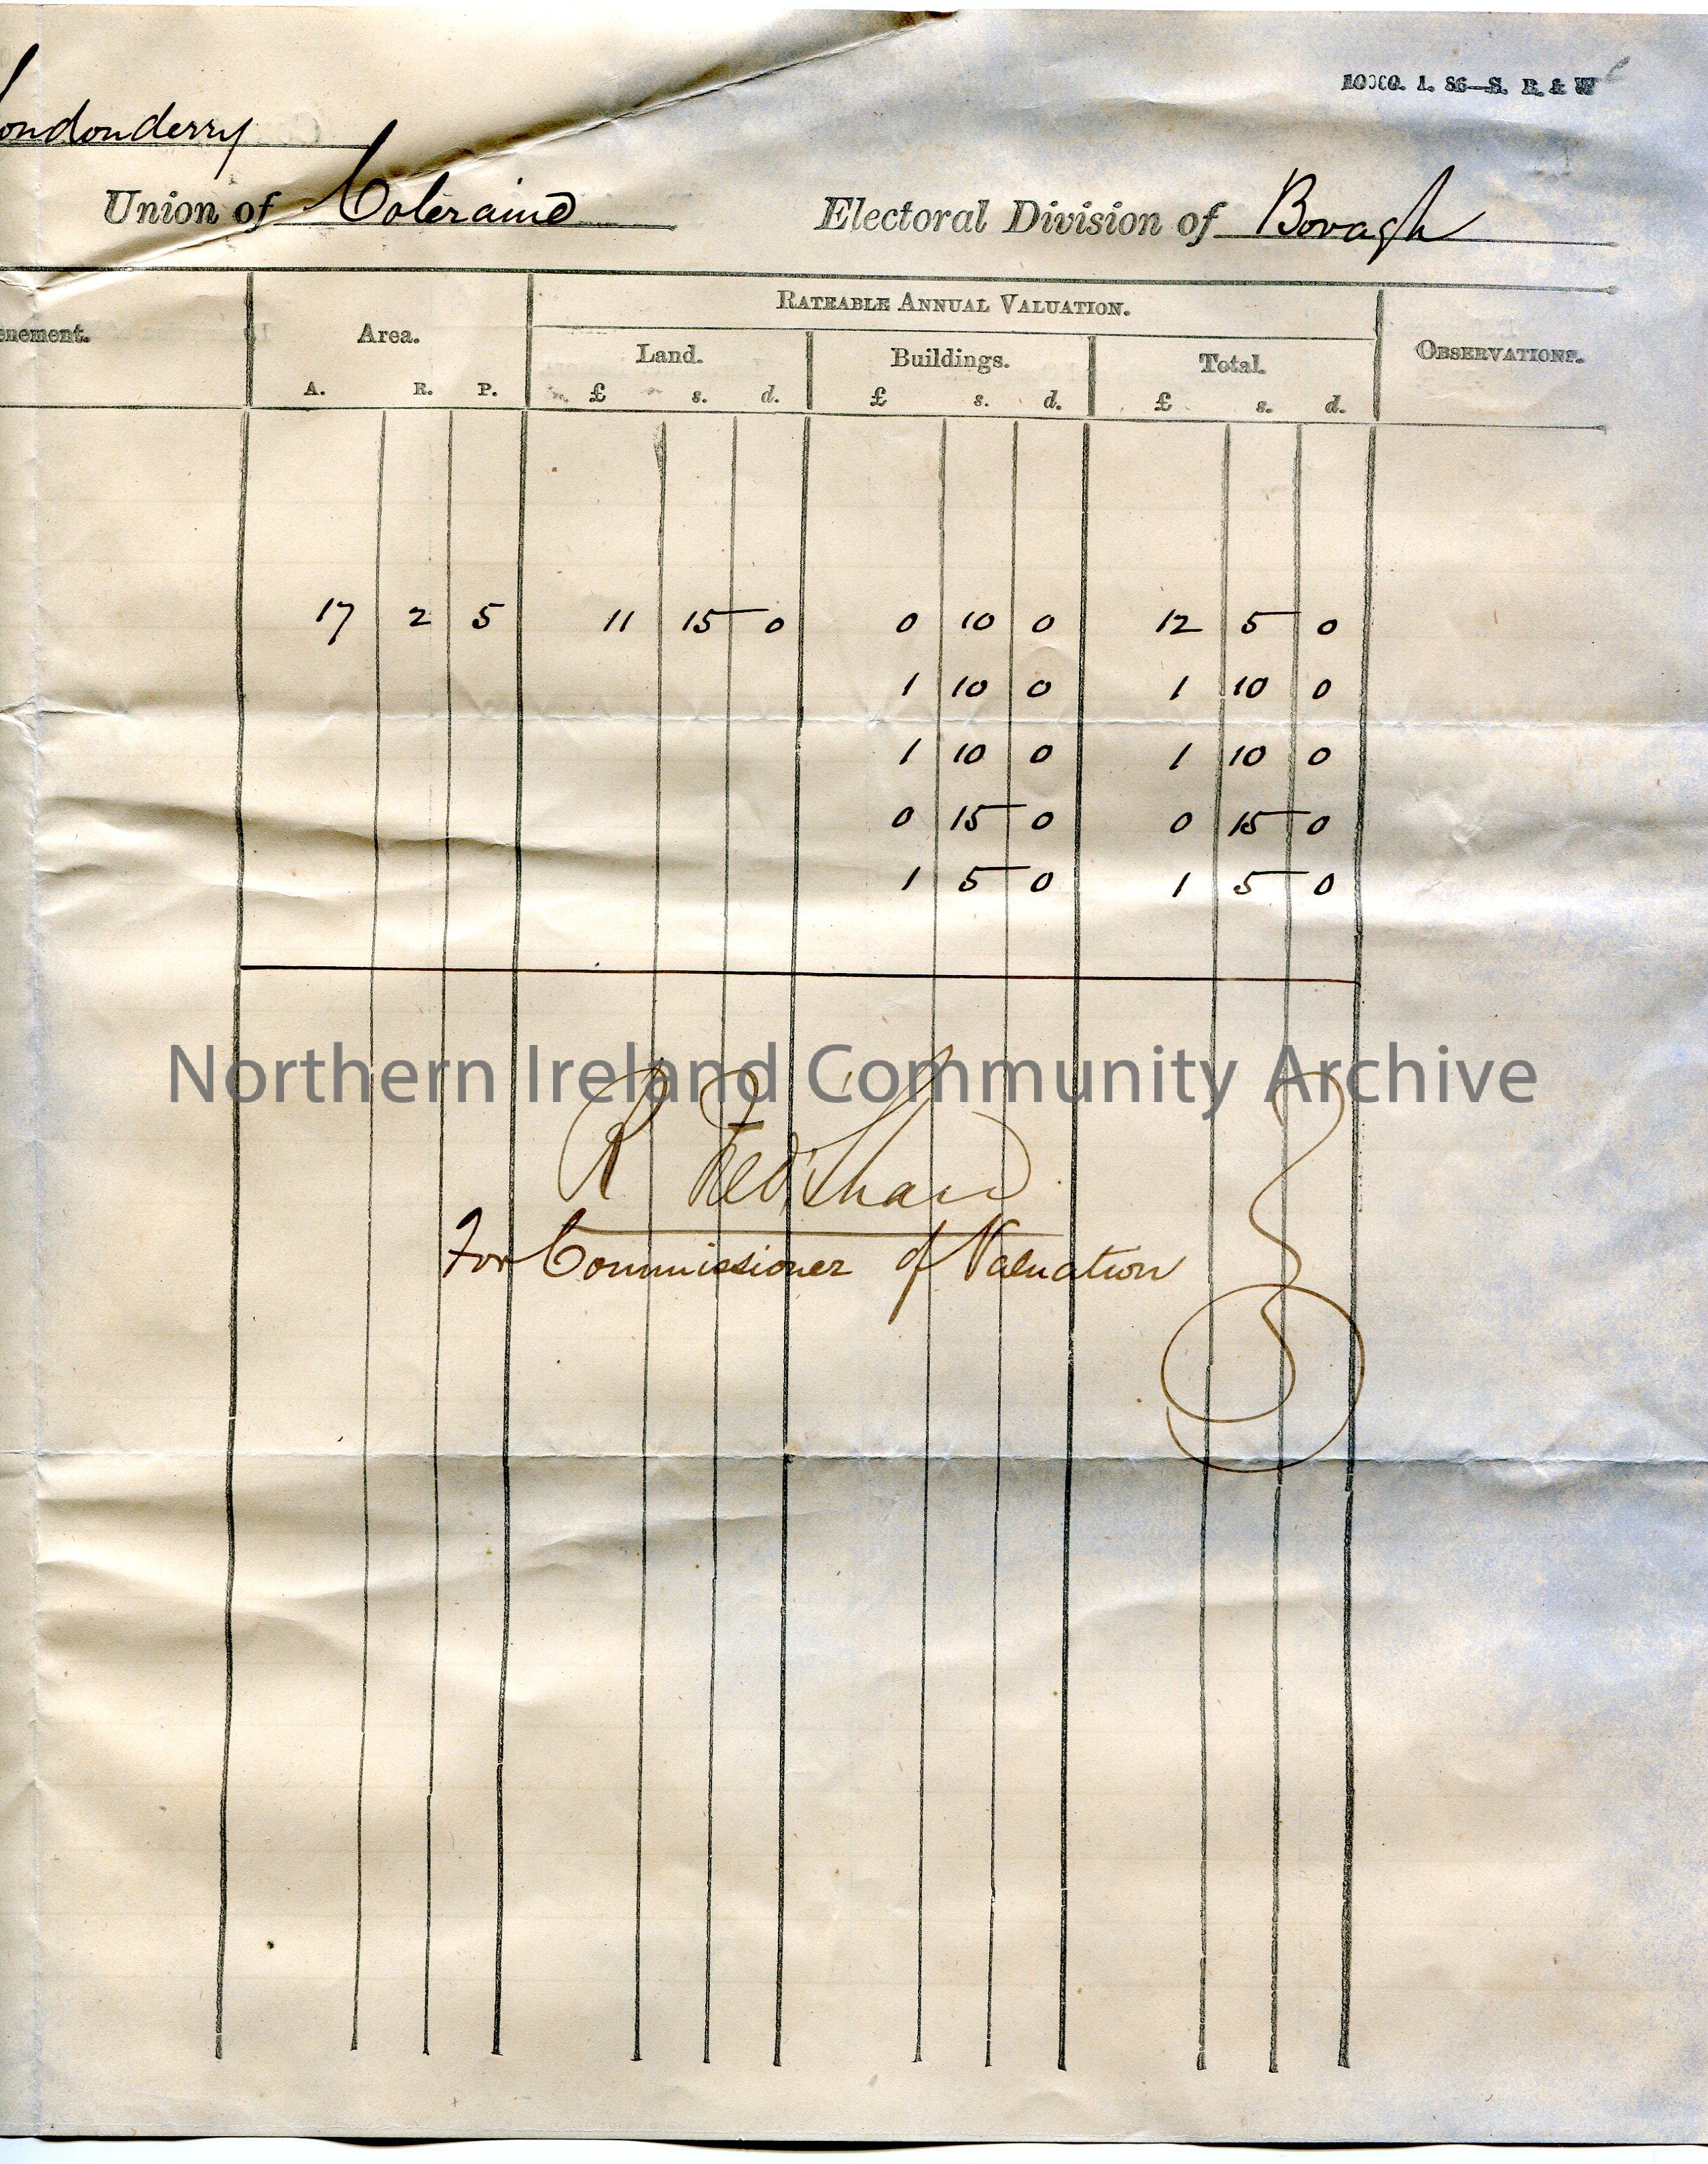 10000. 1. 86—S. B. & W
ondonderry
Union of Coleraine Electoral Division of Bovagh
enement. Area. RATEABLE ANNUAL VALUATION. OBSERVATIONS.
Land. Buildings. Total.
A. R. P. £ s. d. £ s. d. £ s. d.
17 2 5 11 15 0 0 10 0 12 5 0
1 10 0 1 10 0
1 10 0 1 10 0
0 15 0 0 15 0
1 5 0 1 5 0
Northern Ireland Community Archive
R
For Commissioner of Valuation